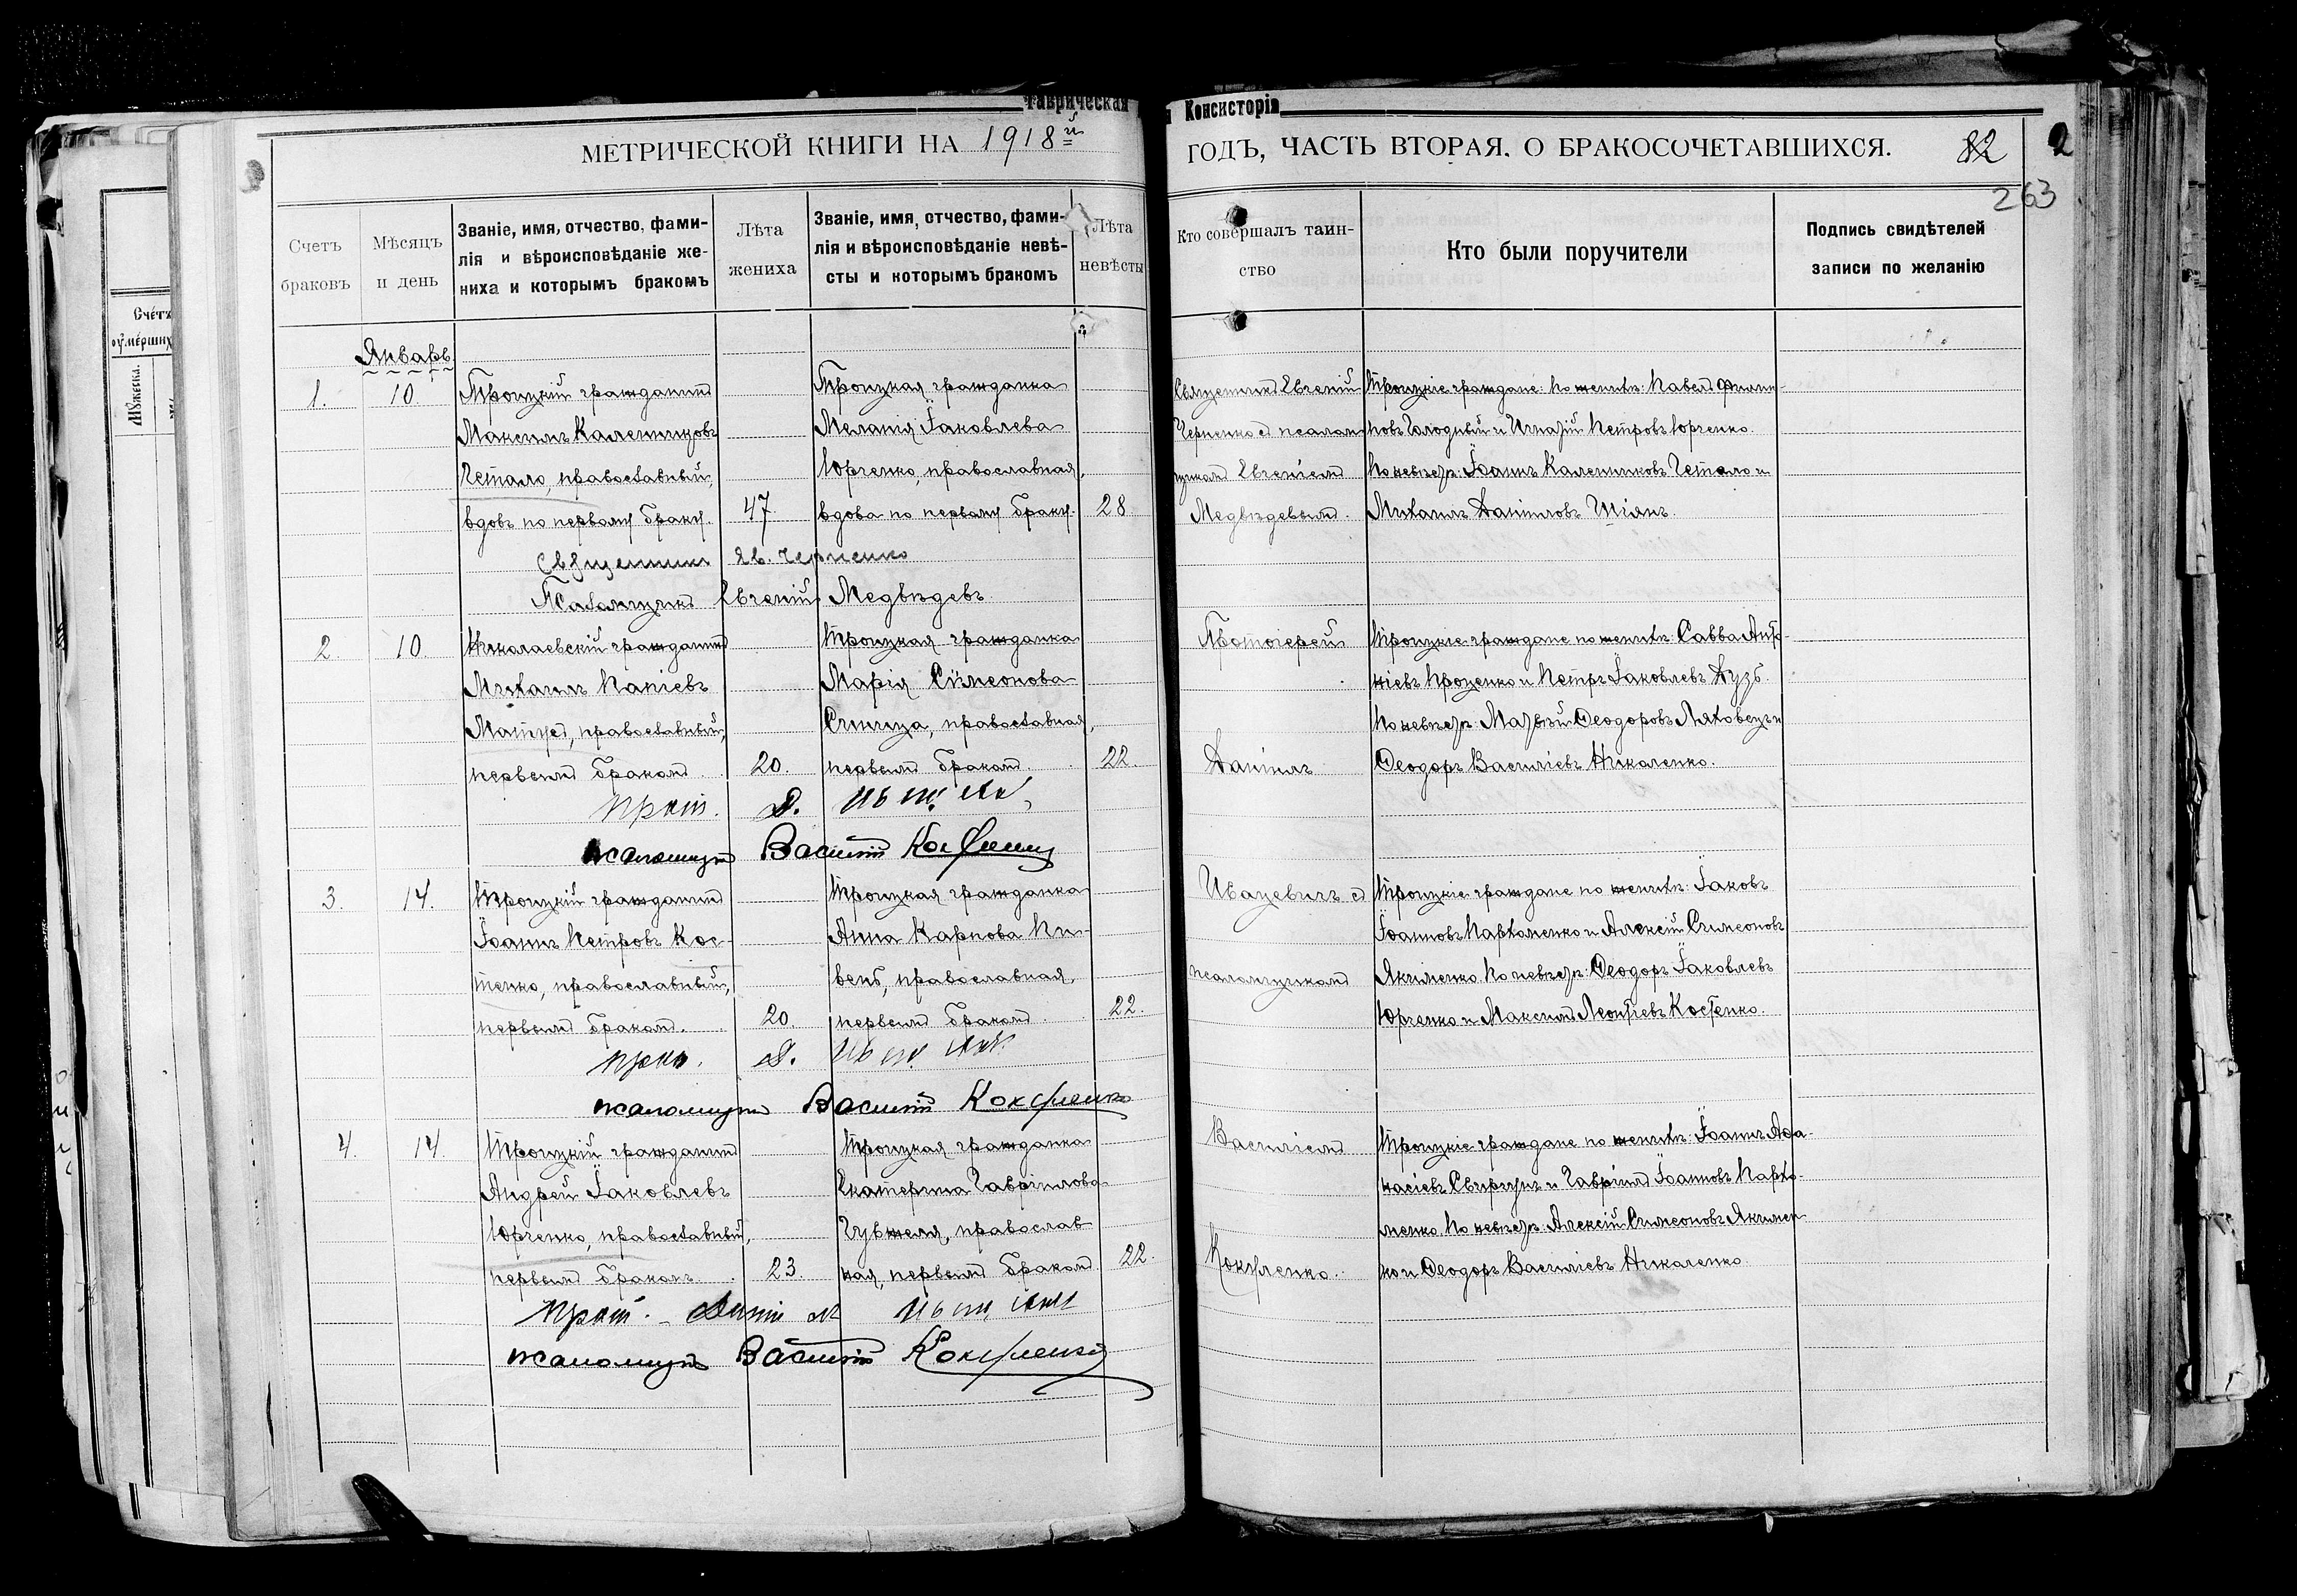 Таврическая
Консисторія
МЕТРИЧЕСКОЙ КНИГИ НА 1918й
ГОДЪ, ЧАСТЬ ВТОРАЯ, О БРАКОСОЧЕТАВШИХСЯ.
82
2
263
Счетъ
браковъ
Мѣсяцъ
и день
Званіе, имя, отчество, фами-
лія и вѣроисповѣданіе же-
ниха и которымъ бракомъ
Лѣта
жениха
Званіе, имя, отчество, фами-
лія и вѣроисповѣданіе невѣ-
сты и которымъ бракомъ
Лѣта
невѣсты
Кто совершалъ таин-
ство
Кто были поручители
Подпись свидѣтелей
записи по желанію
Счётъ
оумершихъ
Мужеска.
Январь
1.
10.
Троицкій гражданинъ
Максимъ Калениковъ
Четало, православный,
вдовъ по первому браку.
47
Троицкая гражданка
Меланія Іаковлева
Юрченко, православная,
вдова по первому браку.
28
Священникъ Евгеній
Черненко съ псалом-
щикомъ Евгеніемъ
Медвѣдевымъ.
Троицкіе граждане: по женихѣ: Павелъ Филип-
повъ Голодный и Игнатій Петровъ Юрченко.
По невѣстѣ: Іоаннъ Калениковъ Четало и
Михаилъ Даніиловъ Шіянъ.
Священникъ Ев. Черненко
Псаломщикъ Евгеній Медвѣдевъ
2.
10.
Николаевскій гражданинъ
Михаилъ
православный,
первымъ бракомъ
20.
Троицкая гражданка
Марія Симеонова
православная,
первымъ бракомъ.
22.
Протоіерей
Даніилъ
Троицкіе граждане по женихѣ: Савва Анто-
ніевъ Проценко и Петръ Іаковлевъ Дузь.
По невѣстѣ: Ѳеодоровъ Ляховецъ и
Ѳеодоръ Василіевъ Николенко.
Прот. Д.
псаломщикъ Василій
3.
14.
Троицкій гражданинъ
Іоаннъ Петровъ Кос-
тенко, православный,
первымъ бракомъ.
20.
Троицкая гражданка
Анна Карпова Пи-
вень, православная,
первымъ бракомъ.
22.
Ивацевичъ съ
псаломщикомъ
Троицкіе граждане по женихѣ: Іаковъ
Іоанновъ Пархоменко и Алексій Симеоновъ
Якименко. По невѣстѣ: Ѳеодоръ Іаковлевъ
Юрченко и Максимъ Леонтіевъ Костенко.
Прот. Д.
псаломщикъ Василій
4.
14.
Троицкій гражданинъ
Андрей Іаковлевъ
Юрченко, православный,
первымъ бракомъ.
23.
Троицкая гражданка
Екатерина Гавріилова
православ
ная, первымъ бракомъ
22.
Василіемъ
Троицкіе граждане по женихѣ: Іоаннъ Аѳа-
насіевъ и Гавріилъ Іоанновъ Пархо-
менко. По невѣстѣ: Алексій Симеоновъ Якимен
ко и Ѳеодоръ Василіевъ Николенко
Прот. Даніилъ
псаломщикъ Василій